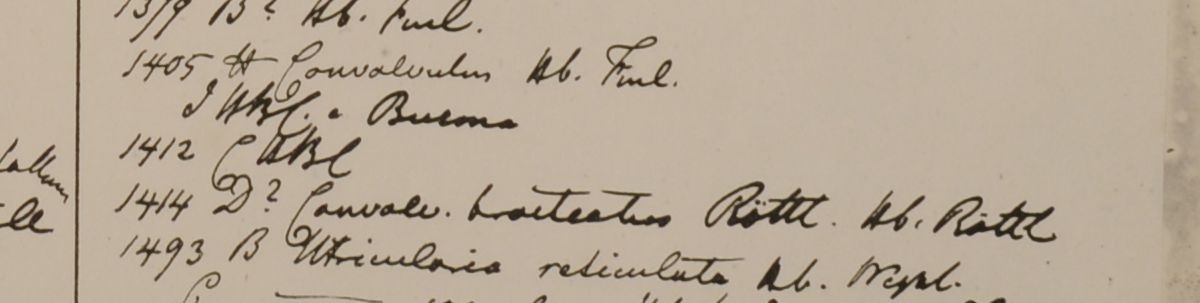 1379 B? Hb. Finl.
1405 H Convolvulus Hb. Finl.
I HBC. a Burma
1412 C HBC
1414 D? Convolv. bracteatus Röttl. Hb. Röttl
1493 B Utricularia reticulata Hb. Wight.